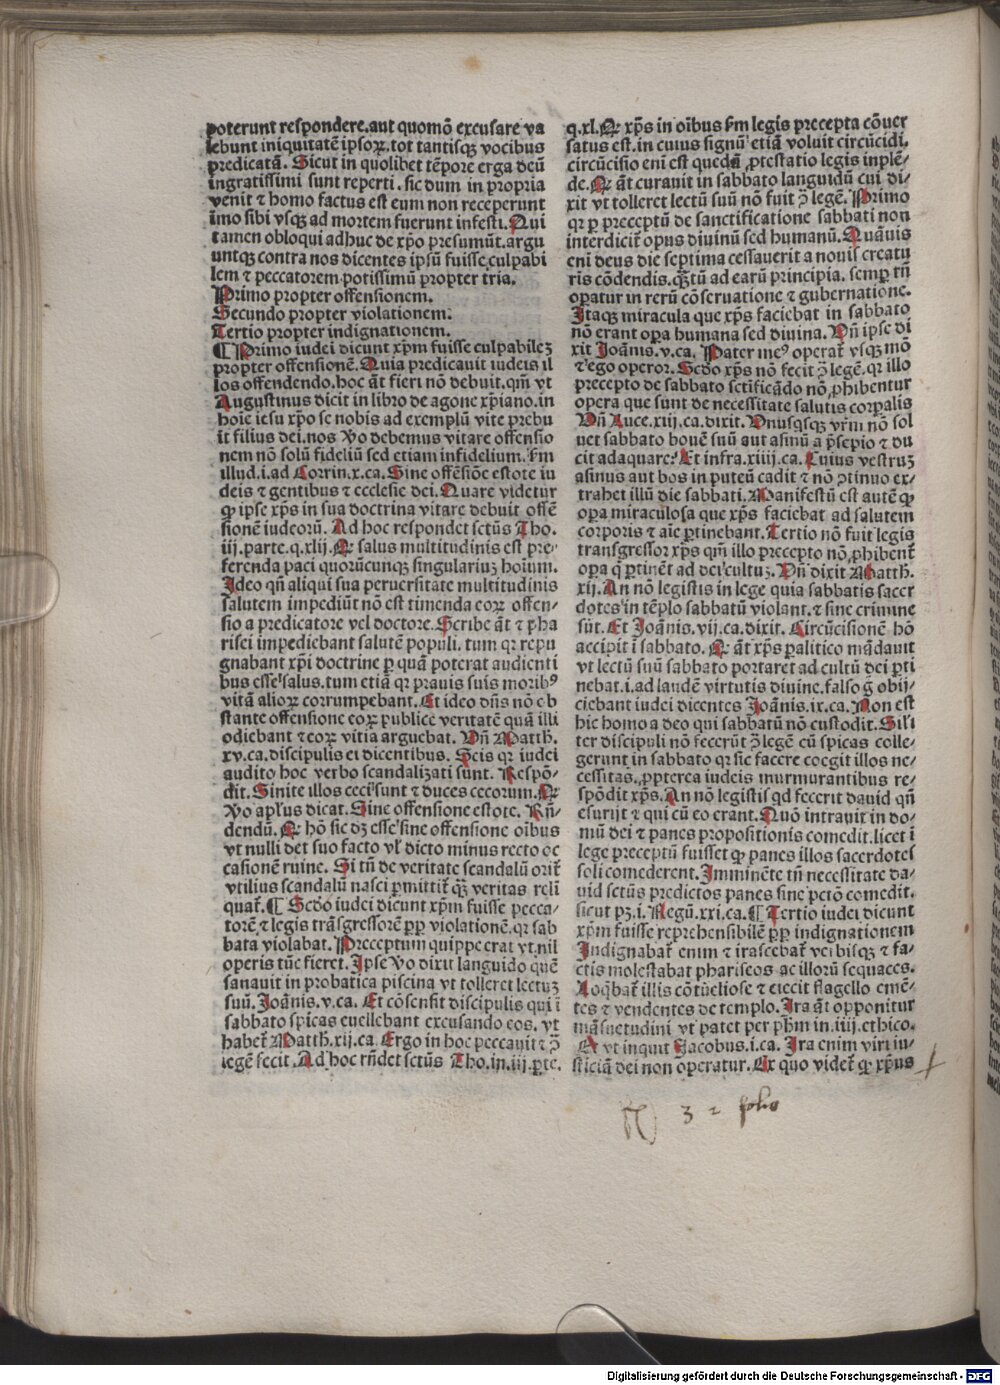 poterunt respondere.aut quomō excusare va
lebunt iniquitatē ipsoꝝ.tot tantisqꝫ vocibus
predicatā. Sicut in quolibet tēpore erga deū
ingratissimi sunt reperti.sic dum in propria
venit ⁊ homo factus est eum non receperunt
imo sibi vsqꝫ ad mortem fuerunt infesti.Qui
tamen obloqui adhuc de xp̄o presumūt.argu
untqꝫ contra nos dicentes ipsū fuisse culpabi
lem ⁊ peccatorem potissimū propter tria.
Primo propter offensionem.
Secundo propter violationem.
Tertio propter indignationem.
¶ Primo iudei dicunt xp̄m fuisse culpabileꝫ
propter offensionē.Quia predicauit iudeis il
los offendendo.hoc āt fieri nō debuit.qm̄ vt
Augustinus dicit in libro de agone xp̄iano.in
hoīe iesu xp̄o se nobis ad exemplū vite prebu
it filius dei.nos ꝟo debemus vitare offensio
nem nō solū fideliū sed etiam infidelium.s̄m
illud.i.ad Corrin.x.ca.Sine offēsiōe estote iu
deis ⁊ gentibus ⁊ ecclesie dei.Quare videtur
ꝙ ipse xp̄s in sua doctrina vitare debuit offē
sionē iudeorū. Ad hoc respondet sctūs Tho.
iij.parte.q.xlij.Qꝛ salus multitudinis est pre-
ferenda paci quorūcunqꝫ singulariuꝫ hoīum.
Ideo qn̄ aliqui sua peruersitate multitudinis
salutem impediūt nō est timenda eoꝝ offen-
sio a predicatore vel doctore.Scribe āt ⁊ pha
risei impediebant salutē populi.tum qꝛ repu
gnabant xp̄i doctrine ꝑ quā poterat audienti
bus esse salus.tum etiā qꝛ prauis suis moribꝰ
vitā alioꝝ corrumpebant.Et ideo dn̄s nō ob
stante offensione eoꝝ publice veritatē quā illi
odiebant ⁊ eoꝝ vitia arguebat. Vn̄ Matth.
xv.ca.discipulis ei dicentibus. Scis qꝛ iudei
audito hoc verbo scandalizati sunt. Respō-
dit.Sinite illos ceci sunt ⁊ duces cecorum.Qꝛ
ꝟo apl̄us dicat.Sine offensione estote. Rn̄-
dendū.Qꝛ hō sic dꝫ esse sine offensione oībus
vt nulli det suo facto vl̓ dicto minus recto oc
casionē ruine. Si tn̄ de veritate scandalū orit̄
vtilius scandalū nasci ꝑmittit̄ qꝫ̄ veritas reli
quat̄.¶ Scdo iudei dicunt xp̄m fuisse pecca-
torē ⁊ legis trāsgressorē ꝓp̄ violationē.qꝛ sab
bata violabat. Preceptum quippe erat vt nil
operis tūc fieret.Ipse ꝟo dixit languido quē
sanauit in probatica piscina vt tolleret lectuꝫ
suū. Joānis.v.ca. Et cōsensit discipulis qui ī
sabbato spicas euellebant excusando eos. vt
habet̄ Matth.xij.ca.Ergo in hoc peccauit ⁊ ↄ̄
legē fecit.Ad hoc rn̄det sctūs Tho.in.iij.ꝑte.
q.xl.Qꝛ xp̄s in oībus s̄m legis precepta cōuer
satus est.in cuius signū etiā voluit circūcidi.
circūcisio eni est quedā ꝓtestatio legis inplē-
de.Qꝛ āt curauit in sabbato languidū cui di-
xit vt tolleret lectū suū nō fuit ↄ̄ legē. Primo
qꝛ ꝑ preceptū de sanctificatione sabbati non
interdicit̄ opus diuinū sed humanū.Quāuis
eni deus die septima cessauerit a nouis creatu
ris cōdendis.qꝫ̄tū ad earū principia. semꝑ tn̄
oꝑatur in rerū cōseruatione ⁊ gubernatione.
Itaqꝫ miracula que xp̄s faciebat in sabbato
nō erant oꝑa humana sed diuina. Vn̄ ipse di
xit Joānis.v.ca. Pater meꝰ operat̄ vsqꝫ mō
⁊ ego operor. Scdo xp̄s nō fecit ↄ̄ legē.qꝛ illo
precepto de sabbato sctificādo nō ꝓhibentur
opera que sunt de necessitate salutis corꝑalis
Vn̄ Luce.xiij.ca.dixit. Vnusqsqꝫ vr̄m nō sol
uet sabbato bouē suū aut asinū a p̄sepio ⁊ du
cit adaquare? Et infra.xiiij.ca.Cuius vestruꝫ
asinus aut bos in puteū cadit ⁊ nō ꝯtinuo ex-
trahet illū die sabbati.Manifestū est autē ꝙ
oꝑa miraculosa que xp̄s faciebat ad salutem
corporis ⁊ aīe ꝑtinebant.Tertio nō fuit legis
transgressor xp̄s qm̄ illo precepto nō ꝓhibent̄
oꝑa q̄ ꝑtinēt ad dei cultuꝫ. Vn̄ dixit Matth.
xij.An nō legistis in lege quia sabbatis sacer
dotes in tēplo sabbatū violant.⁊ sine crimine
sūt. Et Joānis.vij.ca.dixit. Circūcisionē hō
accipit ī sabbato. Qꝛ āt xp̄s ꝑalitico mādauit
vt lectū suū sabbato portaret ad cultū dei ꝑti
nebat.i.ad laudē virtutis diuine.falso g̊ obij-
ciebant iudei dicentes Joānis.ix.ca.Non est
hic homo a deo qui sabbatū nō custodit.Sil̓i
ter discipuli nō fecerūt ↄ̄ legē cū spicas colle-
gerunt in sabbato qꝛ sic facere coegit illos ne-
cessitas.ꝓpterea iudeis murmurantibus re-
spōdit xp̄s.An nō legistis qd fecerit dauid qn̄
esurijt ⁊ qui cū eo erant.Quō intrauit in do-
mū dei ⁊ panes propositionis comedit.licet ī
lege preceptū fuisset ꝙ panes illos sacerdotes
soli comederent.Imminēte tn̄ necessitate da-
uid sctūs predictos panes sine pctō comedit.
sicut pꝫ.i.Regū.xxi.ca.¶ Tertio iudei dicunt
xp̄m fuisse reprehensibilē ꝓp̄ indignationem
Indignabat̄ enim ⁊ irascebat̄ verbisqꝫ ⁊ fa-
ctis molestabat phariseos ac illorū sequaces.
Loq̄bat̄ illis cōtūeliose ⁊ eiecit flagello emē-
tes ⁊ vendentes de templo.Ira āt opponitur
māsuetudini vt patet per ph̄m in.iiij.ethico.
Et vt inquit Jacobus.i.ca. Ira enim viri iu-
sticiā dei non oꝑatur.Ex quo videt̄ ꝙ xp̄us
3 2 folio
Digitalisierung gefördert durch die Deutsche Forschungsgemeinschaft - DFG